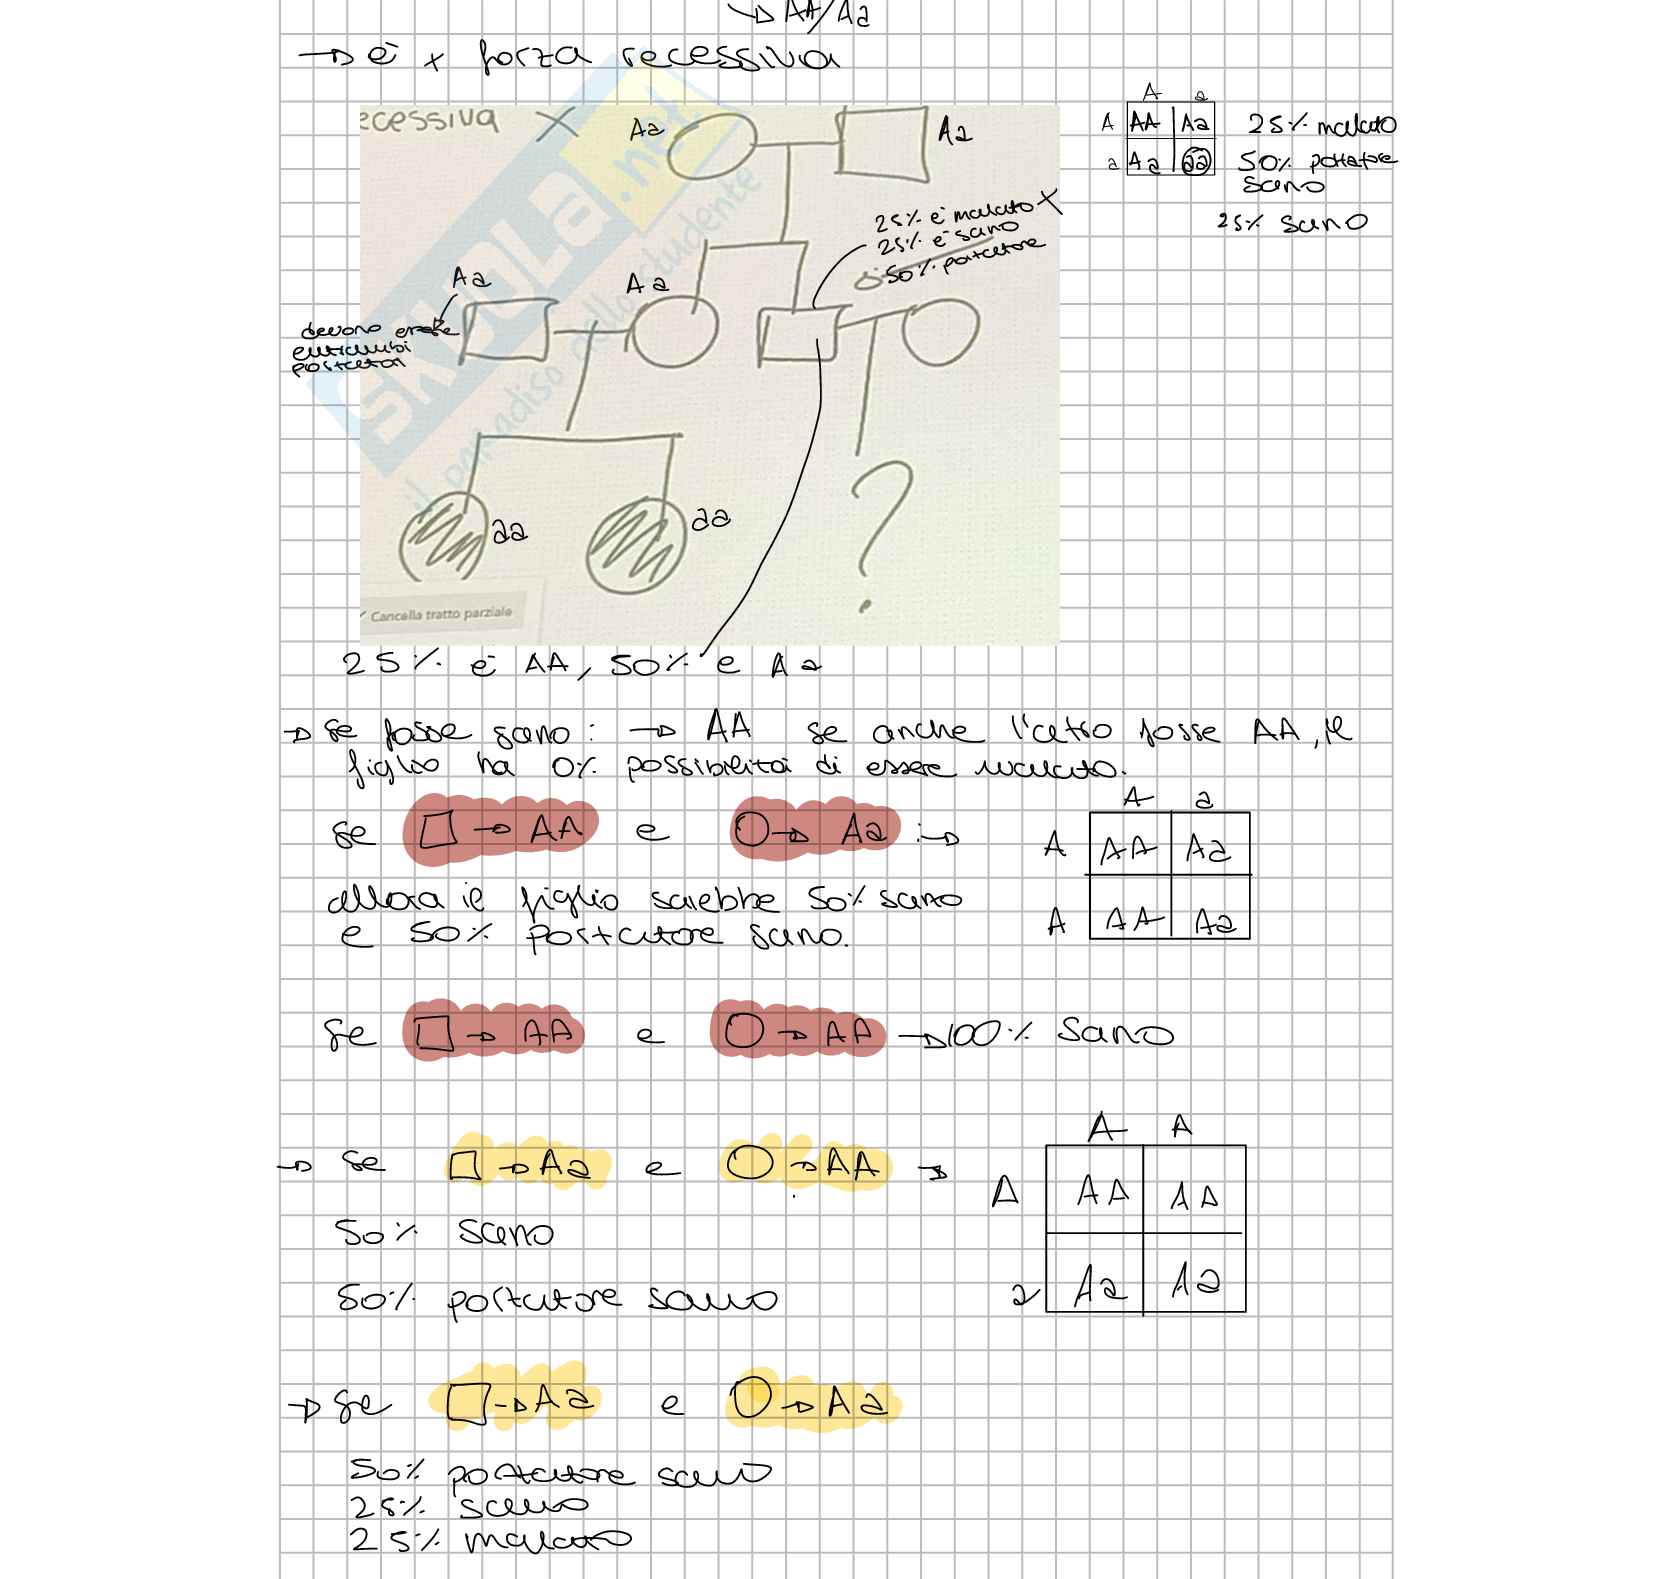 → AA/Aa
→ è x forza recessiva
ecessiva X
Aa
Aa
A a
A AA Aa 25% malato
a Aa aa 50% portatore
sano
25% sano
25% è malato X
25% è sano
50% portatore
Aa
Aa
devono essere
entrambi
portatori
SKUOLA.net
il paradiso dello studente
aa
aa
?
Cancella tratto parziale
25% è AA, 50% e Aa
→ se fosse sano: → AA se anche l'altro fosse AA, il
figlio ha 0% possibilità di essere malato.
se □ → AA e ○ → Aa :→
allora il figlio sarebbe 50% sano
e 50% portatore sano.
A a
A AA Aa
A AA Aa
se □ → AA e ○ → AA → 100% sano
→ se □ → Aa e ○ → AA →
50% sano
50% portatore sano
A A
A AA AA
a Aa Aa
→ se □ → Aa e ○ → Aa
50% portatore sano
25% sano
25% malato